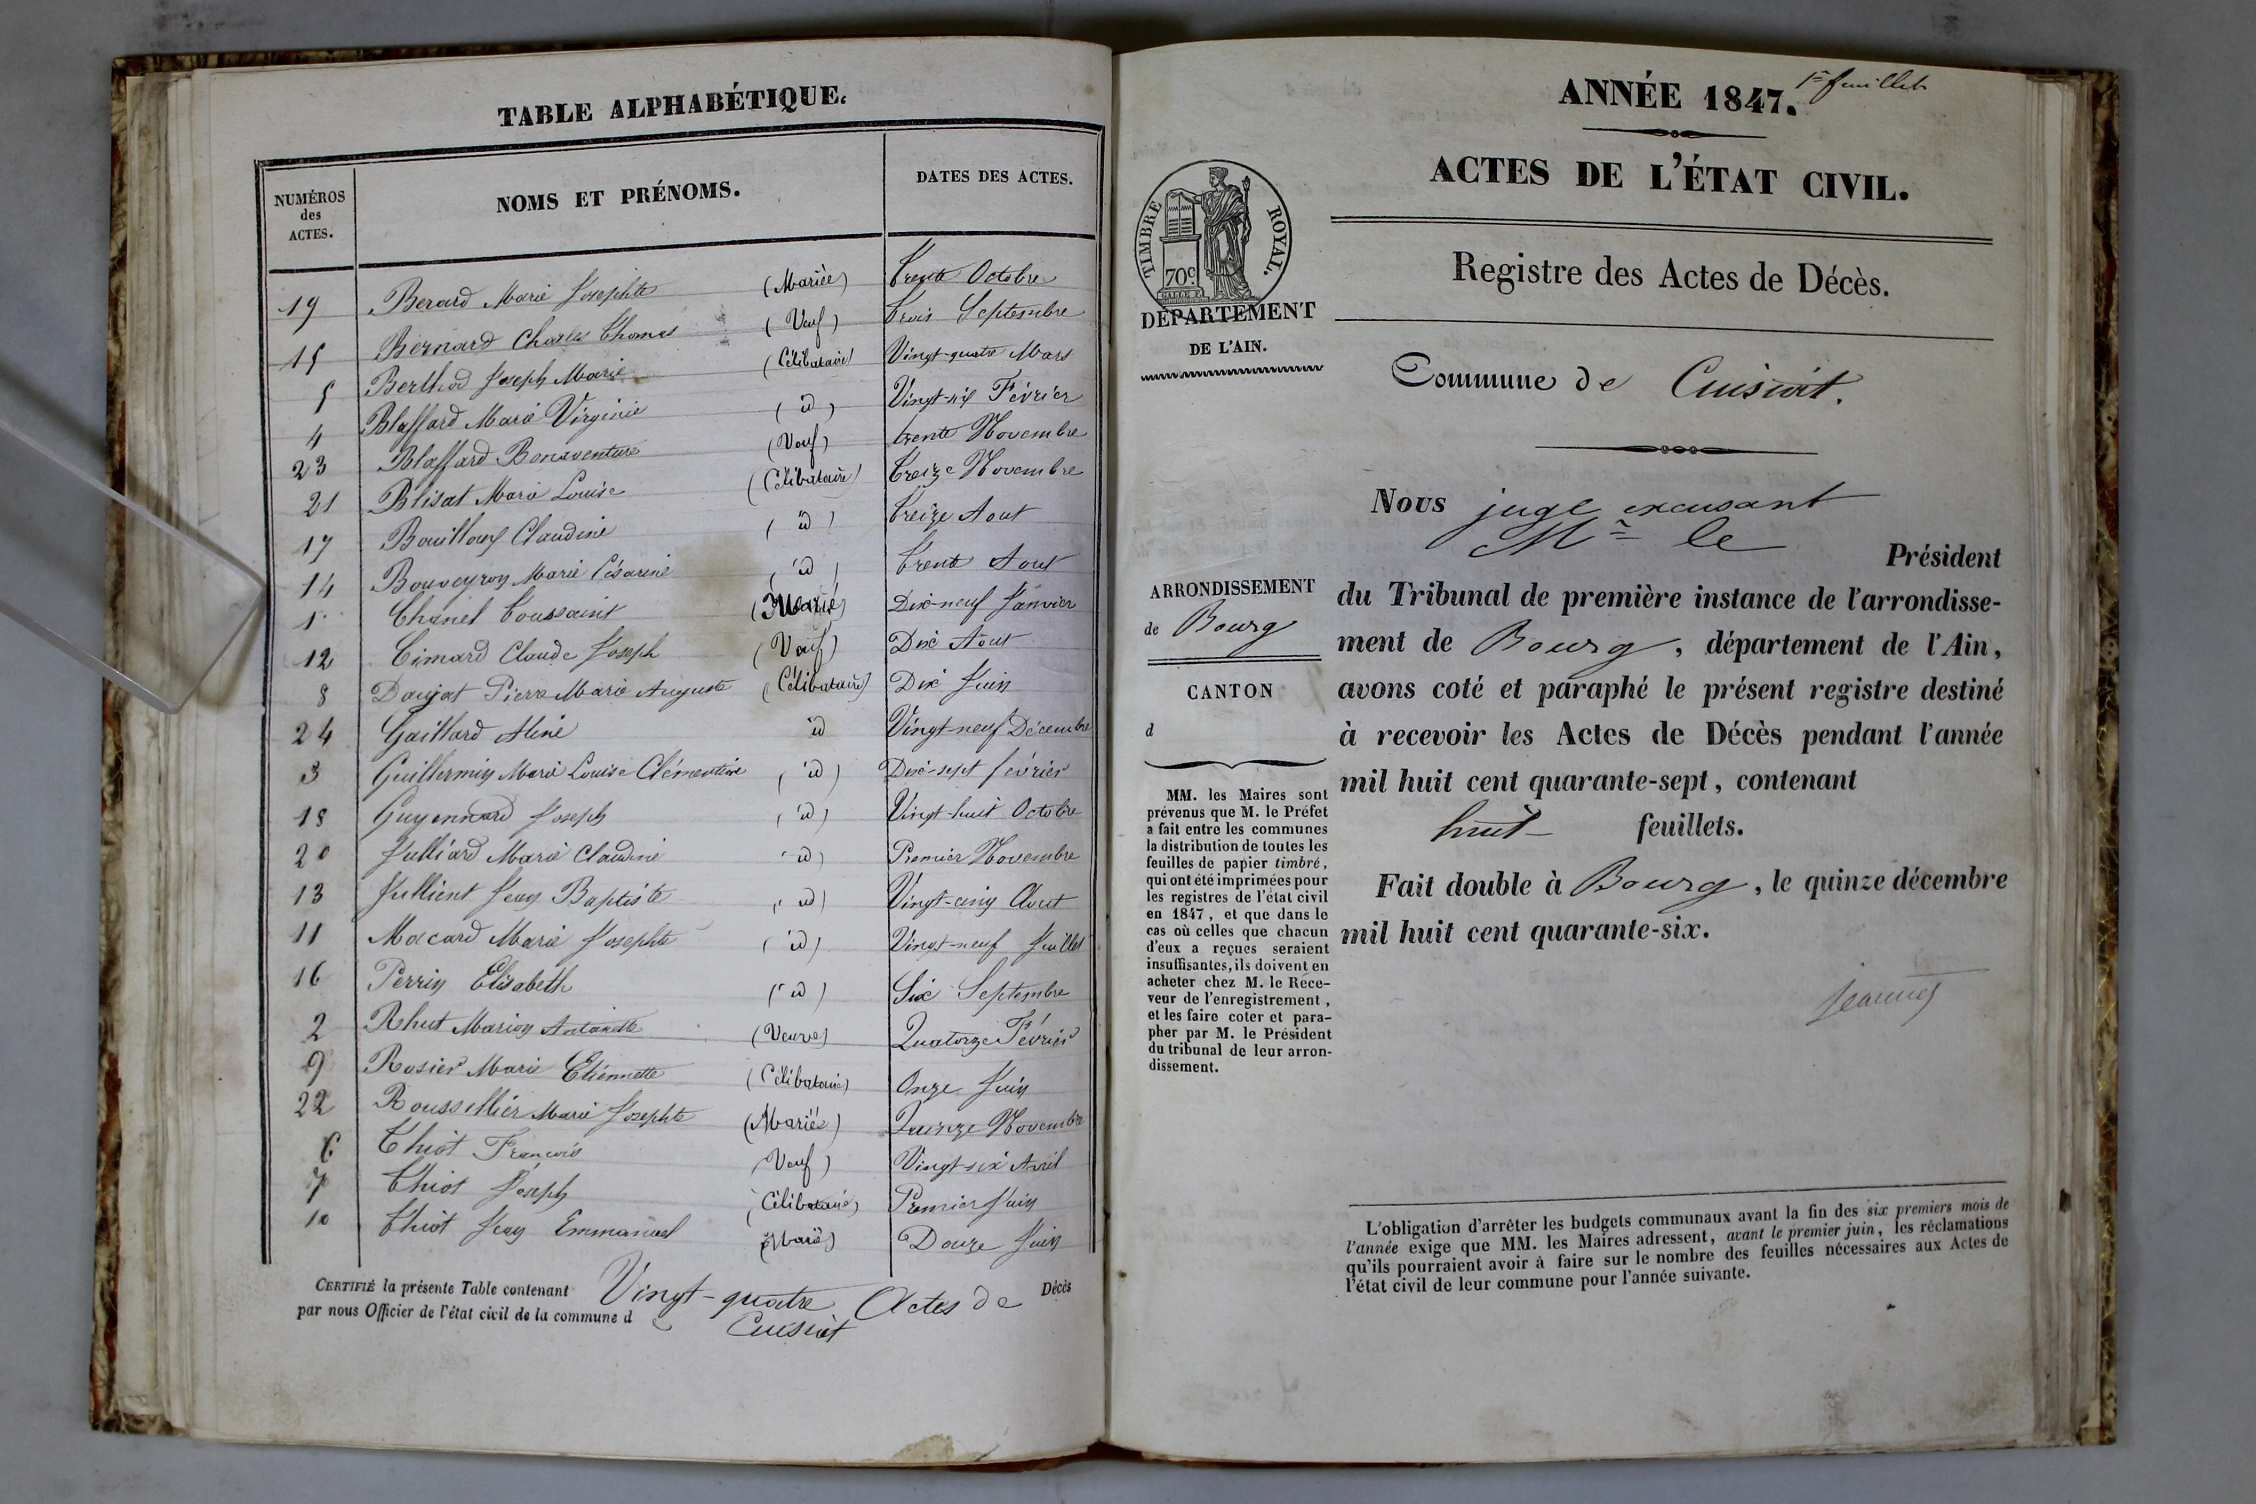 TABLE ALPHABÉTIQUE.
NUMÉROS des ACTES. NOMS ET PRÉNOMS. DATES DES ACTES.
19 Berard Marie Josephte (Mariée) trente Octobre
15 Bernard Charles Thomas (Veuf) trois Septembre
5 Berthod Joseph Marie (Célibataire) Vingt-quatre Mars
4 Blaffard Marie Virginie (id) Vingt-six Février
23 Blaffard Bonaventure (Veuf) trente Novembre
21 Blisat Marie Louise (Célibataire) treize Novembre
17 Bouilloux Claudine (id) treize Aout
14 Bouveyron Marie Césarine (id) trente Aout
1 Chanel Toussaint (Marié) Dix-neuf Janvier
12 Cimard Claude Joseph (Veuf) Dix Aout
8 Daujat Pierre Marie Auguste (Célibataire) Dix Juin
24 Gaillard Aline id Vingt-neuf Décembre
3 Guillermin Marie Louise Clémentine (id) Dix-sept février
18 Guyennard Joseph (id) Vingt-huit Octobre
20 Julliard Marie Claudine (id) Premier Novembre
13 Jullient Jean Baptiste (id) Vingt-cinq Aout
11 Macard Marie Josephte (id) Vingt-neuf Juillet
16 Perrin Elisabeth (id) Six Septembre
2 Rhut Marion Antoinette (Veuve) Quatorze Février
9 Rosier Marie Etiennette (Célibataire) Onze Juin
22 Roussillier Marie Josephte (Mariée) Quinze Novembre
6 Thiot François (Veuf) Vingt-six Avril
7 Thiot Joseph (Célibataire) Premier Juin
10 Thiot Jean Emmanuel (Marié) Douze Juin
CERTIFIÉ la présente Table contenant Vingt-quatre Actes de Décès
par nous Officier de l'état civil de la commune d Cuisiat
1er feuillet
ANNÉE 1847.
ACTES DE L'ÉTAT CIVIL.
TIMBRE ROYAL.
70c
Registre des Actes de Décès.
DÉPARTEMENT
DE L'AIN.
Commune de Cuisiat.
Nous juge excusant
Mr le Président
du Tribunal de première instance de l'arrondisse-
ment de Bourg, département de l'Ain,
avons coté et paraphé le présent registre destiné
à recevoir les Actes de Décès pendant l'année
mil huit cent quarante-sept, contenant
huit feuillets.
Fait double à Bourg, le quinze décembre
mil huit cent quarante-six.
ARRONDISSEMENT
de Bourg
CANTON
d
MM. les Maires sont
prévenus que M. le Préfet
a fait entre les communes
la distribution de toutes les
feuilles de papier timbré,
qui ont été imprimées pour
les registres de l'état civil
en 1847, et que dans le
cas où celles que chacun
d'eux a reçues seraient
insuffisantes, ils doivent en
acheter chez M. le Rece-
veur de l'enregistrement,
et les faire coter et para-
pher par M. le Président
du tribunal de leur arron-
dissement.
L'obligation d'arrêter les budgets communaux avant la fin des six premiers mois de
l'année exige que MM. les Maires adressent, avant le premier juin, les réclamations
qu'ils pourraient avoir à faire sur le nombre des feuilles nécessaires aux Actes de
l'état civil de leur commune pour l'année suivante.